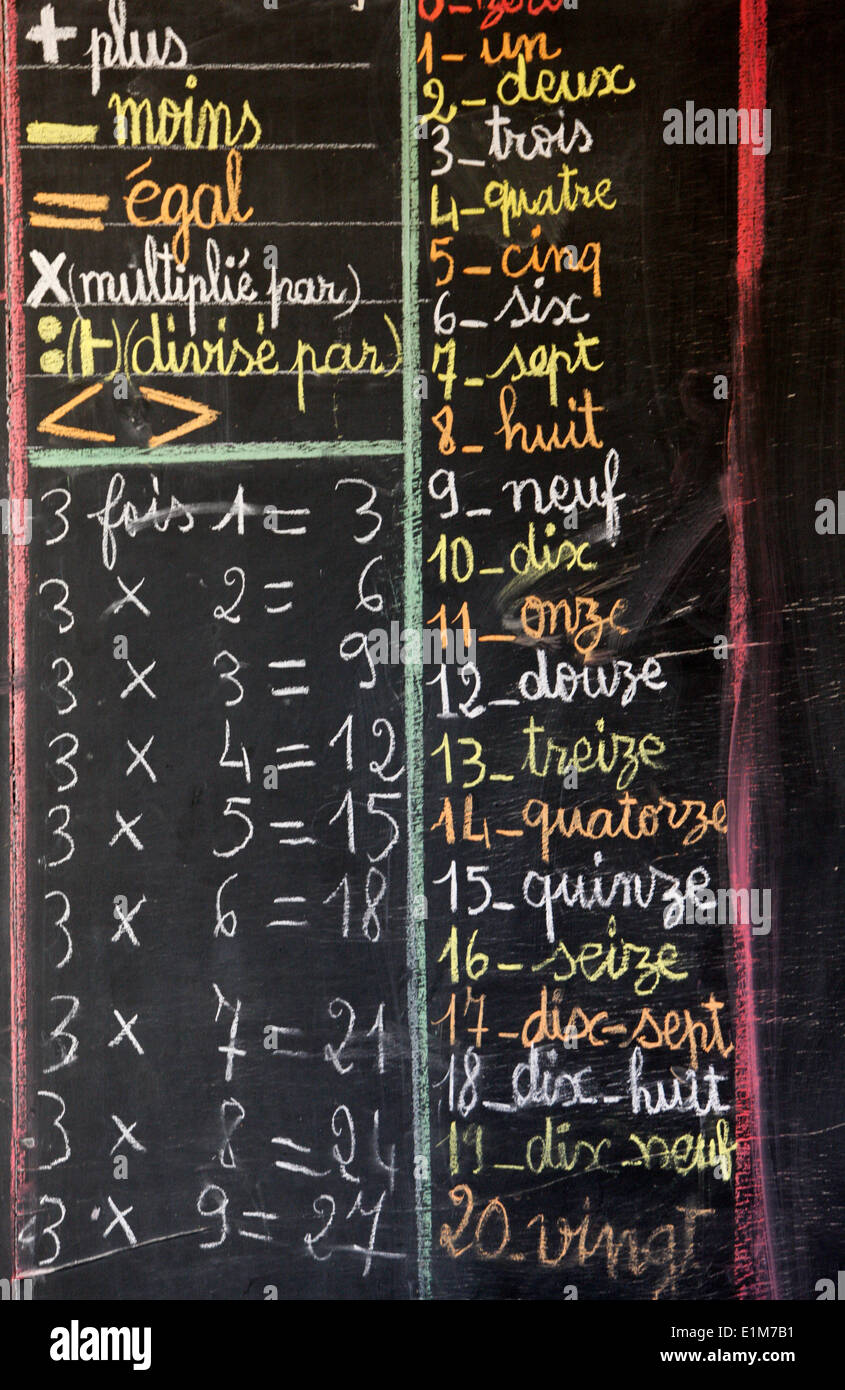 + plus
- moins
= égal
x (multiplié par)
: (÷) (divisé par)
< >
3 fois 1 = 3
3 x 2 = 6
3 x 3 = 9
3 x 4 = 12
3 x 5 = 15
3 x 6 = 18
3 x 7 = 21
3 x 8 = 24
3 x 9 = 27
0-zéro
1-un
2-deux
3-trois
4-quatre
5-cinq
6-six
7-sept
8-huit
9-neuf
10-dix
11-onze
12-douze
13-treize
14-quatorze
15-quinze
16-seize
17-dix-sept
18-dix-huit
19-dix-neuf
20-vingt
alamy
alamy
www.alamy.com
Image ID: E1M7B1